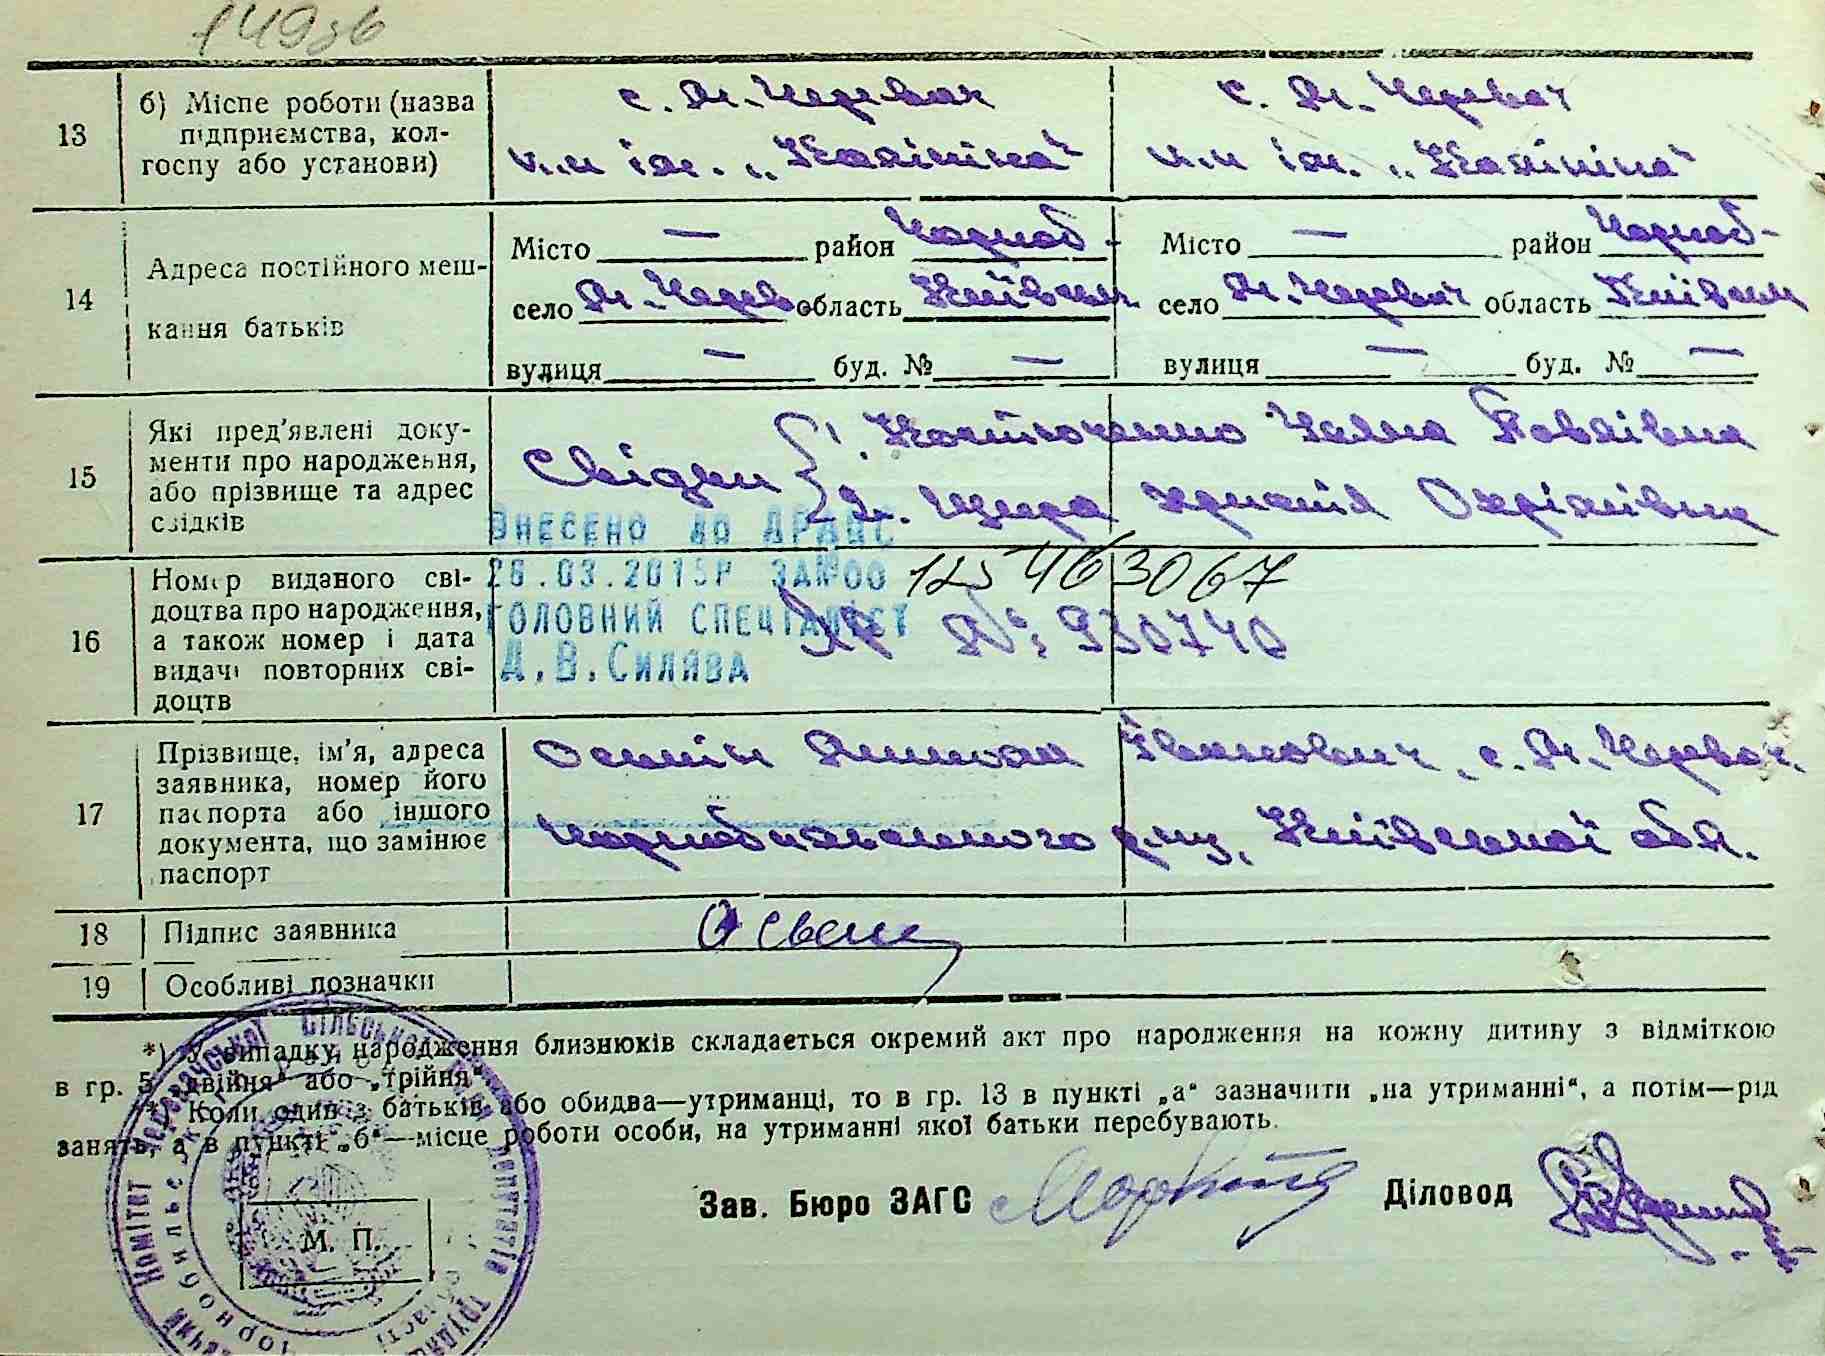 149зв
13
б) Місце роботи (назва підприємства, колгоспу або установи)
с. М. Черевач
к-п ім. „Калініна“
с. М. Черевач
к-п ім. „Калініна“
14
Адреса постійного мешкання батьків
Місто — район Чорноб-
село М.-Черев область Київськ
вулиця — буд. № —
Місто — район Чорноб-
село М.-Черевач область Київськ
вулиця — буд. № —
15
Які пред'явлені документи про народження, або прізвище та адрес свідків
Свідки 1. Костюченко Ганна Павлівна
2. Щира Охрімівна
16
Номер виданого свідоцтва про народження, а також номер і дата видачі повторних свідоцтв
ВНЕСЕНО ДО ДРАЦС
26.03.2015Р ЗА№00 125463067
ГОЛОВНИЙ СПЕЦІАЛІСТ
Д.В.СИЛЯВА
№ 930740
17
Прізвище, ім'я, адреса заявника, номер його паспорта або іншого документа, що замінює паспорт
Іванович, с. М. Черевач,
Чорнобильського р-ну, Київської обл.
18
Підпис заявника
19
Особливі позначки
*) У випадку народження близнюків складається окремий акт про народження на кожну дитину з відміткою
в гр. 5 „двійня“ або „трійня“.
**) Коли один з батьків або обидва—утриманці, то в гр. 13 в пункті „а“ зазначити „на утриманні“, а потім—рід
занять, а в пункті „б“—місце роботи особи, на утриманні якої батьки перебувають.
Зав. Бюро ЗАГС
Діловод
М. П.